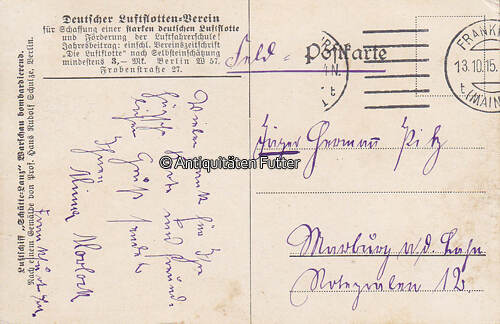 Deutscher Luftflotten-Verein
für Schaffung einer starken deutschen Luftflotte
und Förderung der Luftfahrerschule!
Jahresbeitrag: einschl. Vereinszeitschrift
„Die Luftflotte" nach Selbsteinschätzung
mindestens 3,— Mk. Berlin W 57.
Frobenstraße 27.
Feld = Postkarte
FRANKF
13.10.15.
(MAIN)
Jäger Hermann Pitz
Marburg a/d. Lahn
12.
Vielen Dank für Ihre
hübsche Karte und freund-
lichen Gruß sendet
Ihnen
Minna
Luftschiff „Schütte-Lanz" Warschau bombardierend.
Nach einem Gemälde von Prof. Hans Rudolf Schulze, Berlin.
© Antiquitäten Futter